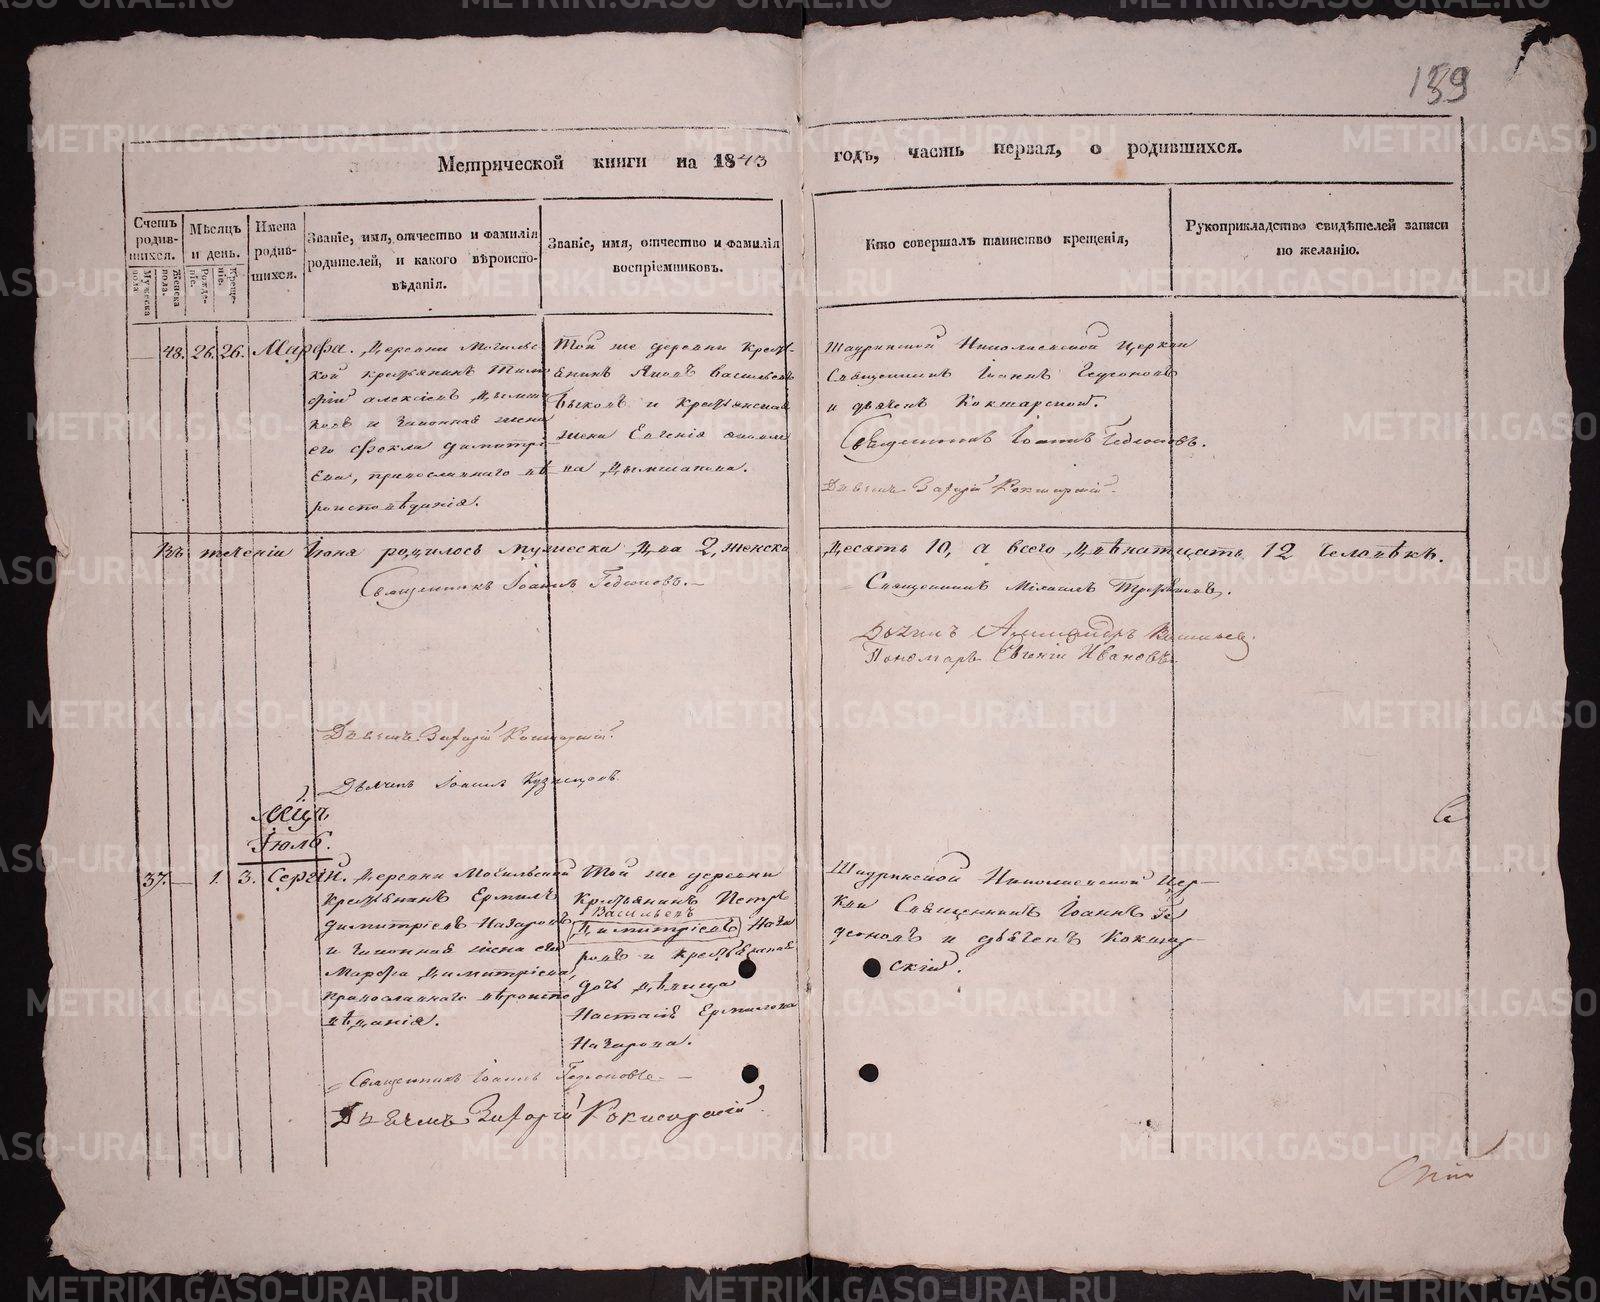 159
Метрической книги на 1843 годъ, часть первая, о родившихся.
Счетъ родив-шихся.
Мужеска пола.
Женска пола.
Мѣсяцъ и день.
Рожде-нія.
Креще-нія.
Имена родив-шихся.
Званіе, имя, отчество и фамилія родителей, и какого вѣроиспо-вѣданія.
Званіе, имя, отчество и фамилія воспріемниковъ.
Кто совершалъ таинство крещенія,
Рукоприкладство свидѣтелей записи по желанію.
48. 26. 26. Марѳа.
Деревни Мочильс
кой крестьянинъ Тимо
фій Алексіевъ
и законная жена
его Ѳекла Димитрі
ева, православнаго вѣ
роисповѣданія.
Той же деревни крест-
янинъ Яковъ Васильевъ
Быковъ и крестьянская
жена Евгенія
на
Шадринской Николаевской Церкви
Священникъ Іоаннъ Гедеоновъ
и дьячекъ Кокшарской.
Священникъ Іоаннъ Гедеоновъ.
Дьячекъ Захарій Кокшарскій.
Въ теченіи Іюня родилось мужеска два 2, женска десять 10, а всего двѣнатцать 12 человѣкъ.
Священникъ Іоаннъ Гедеоновъ.
Священникъ Михаилъ
Дьячекъ Александръ
Пономарь Евгеній Ивановъ.
Дьячекъ Захарій Кокшарскій.
Дьячекъ Іоаннъ Кузнецовъ.
Мѣцъ
Іюль.
37. 1. 3. Сергій.
Деревни Мочильской
крестьянинъ Ермилъ
Димитріевъ Назаровъ
и законная жена его
Марѳа Димитріева,
православнаго вѣроиспо
вѣданія.
Той же деревни
крестьянинъ Петръ
Васильевъ
Димитріевъ Наза
ровъ и крестьянская
дочь дѣвица
Настасія Ермилова
Назарова.
Шадринской Николаевской Цер-
кви Священникъ Іоаннъ Ге
деоновъ и дьячекъ Кокшар-
скій.
Священникъ Іоаннъ Гедеоновъ.
Дьячекъ Захарій Кокшарскій.
METRIKI.GASO-URAL.RU